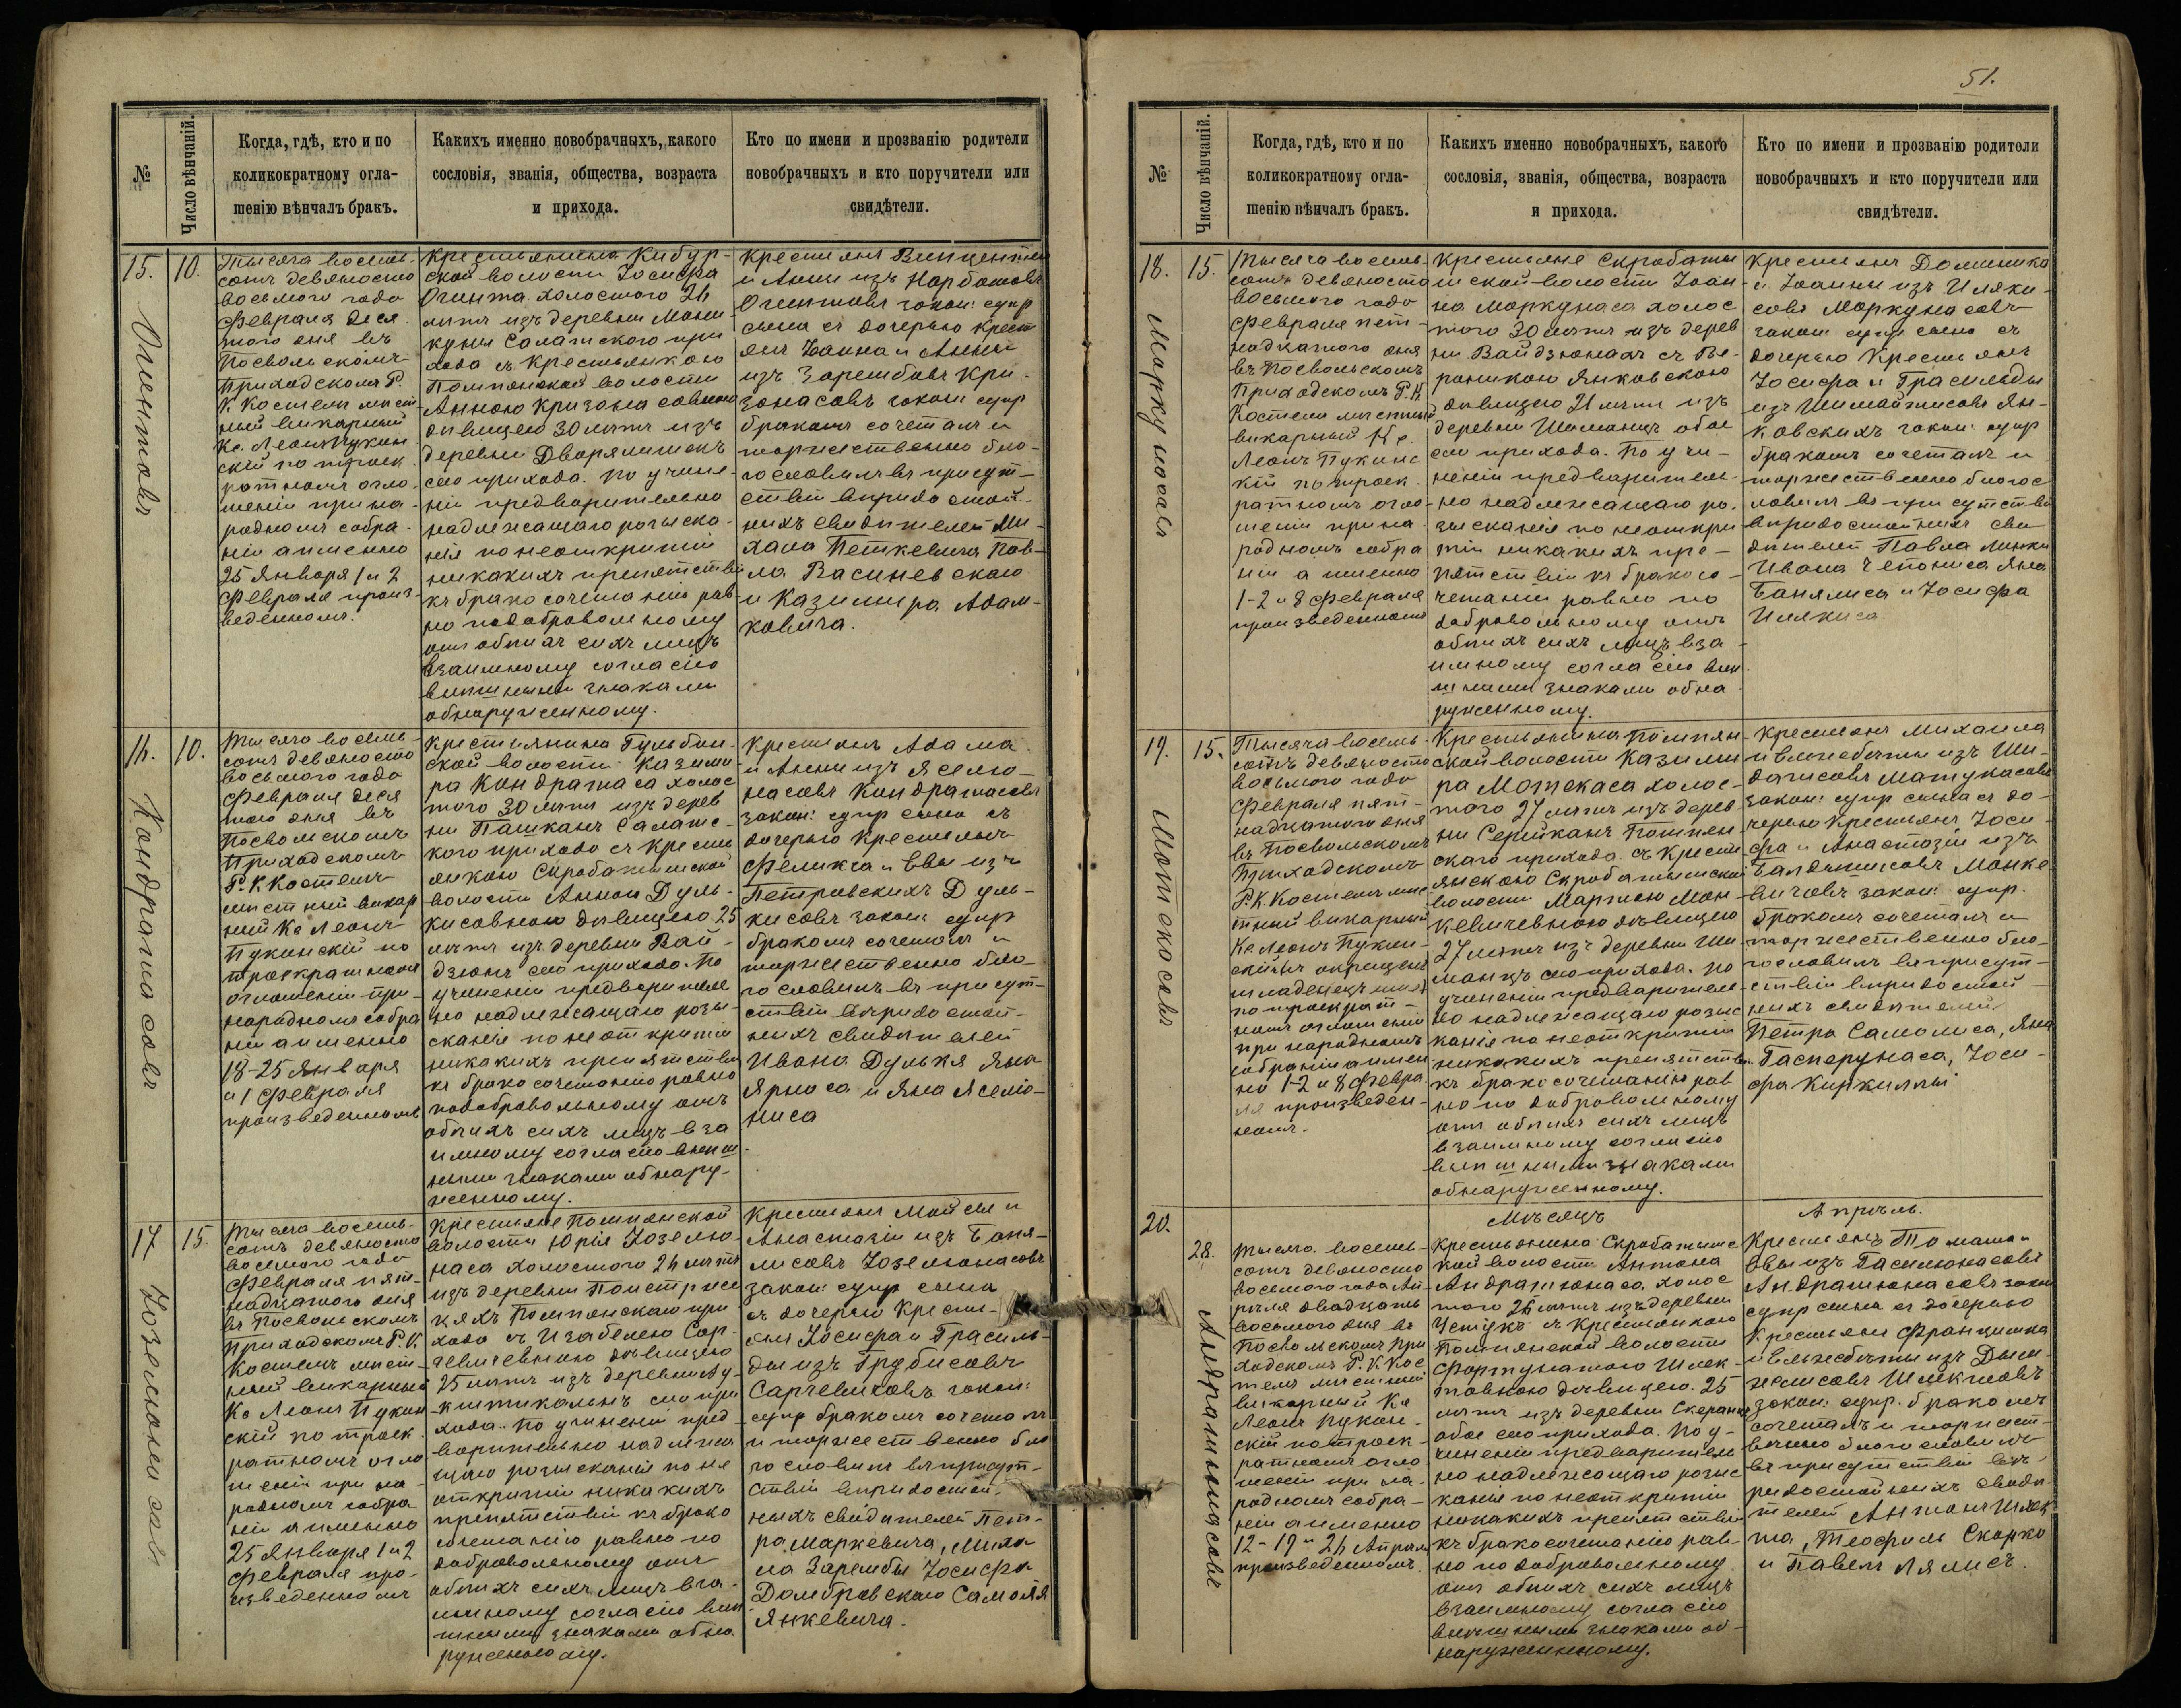 №
Число вѣнчаній.
Когда, гдѣ, кто и по
коликократному огла-
шенію вѣнчалъ бракъ.
Каких именно новобрачныхъ, какого
сословія, званія, общества, возраста
и прихода.
Кто по имени и прозванію родители
новобрачныхъ и кто поручители или
свидѣтели.
15.
10.
Огентовъ
Тысяча восемь-
сотъ девяносто
восьмого года
Февраля деся
того дня въ
Посвольскомъ
Приходскомъ Р.
К Костелѣ мѣст
ный викарный
Кс. Леонъ Пукин
скій по троек
ратномъ огло-
шеніи при на-
родномъ собра-
ніи а именно
25 Января 1 и 2
Февраля произ-
веденномъ.
Крестьянина Кибур-
ской волости Іосифа
Огинта холостого
лѣтъ изъ деревни
куны Салатского при
хода съ Крестьянкою
Помпянской волости
Анною
дѣвицею 30 лѣтъ изъ
деревни Дворялишекъ
сего прихода. По учине-
ніи предварительно
надлежащаго розыска-
нія по неоткрытіи
никакихъ препятствій
къ бракосочетанію рав-
но по добровольному
отъ обѣихъ сихъ лицъ
взаимному согласію
внѣшними знаками
обнаруженному.
Крестьянъ Винцентія
и Анны изъ
Огинтовъ закон: супр
сына съ дочерью Крест
янъ Іоанна и Анны
изъ Зарембовъ Кри-
зонасовъ закон: супр
бракомъ сочеталъ и
торжественно бла-
гословилъ въ присут-
ствіи вѣридостой-
ныхъ свидѣтелей Ми-
хаила Петкевича Пав-
ла Васинев скаго
и Казимира Адам-
ковича.
16.
10.
Кондратасовъ
Тысяча восемь-
сотъ девяносто
восьмого года
Февраля деся
того дня въ
Посвольскомъ
Приходскомъ
Р. К. Костелѣ
мѣстный викар
ный Кс Леонъ
Пукинскій по
троекратномъ
оглошеніи при-
народномъ собра
ніи а именно
18-25 Января
и 1 Февраля
произведенномъ
Крестьянина Гульбин-
ской волости Казими
ра Кондратаса холос
того 30 лѣтъ изъ дерев
ни Пашканъ Салатс-
кого прихода съ Кресть
янкою Скробатышской
волости Анною Дуль-
кисовною дѣвицею 25
лѣтъ изъ деревни Вай-
дзюнъ сего прихода. По
учиненіи предварителе
но надлежащаго розы-
сканія по неоткрытіи
никакихъ препятствій
къ бракосочетанію равно
по добровольному отъ
обѣихъ сихъ лицъ вза
имному согласію внѣш
ними знаками обнару-
женному.
Крестьянъ Адама
и Анны изъ Яселю-
насовъ Кондратасовъ
закон: супр сына съ
дочерью Крестьянъ
Феликса и Евы изъ
Петровскихъ Дуль-
кисовъ закон: супр
бракомъ сочеталъ и
торжественно бла-
гословилъ въ присут-
ствіи вѣридостой-
ныхъ свидѣтелей
Ивана Дулькя Яна
Ярнаса и Яна Яселю-
ниса
17
15.
Юзелюнасовъ
Тысяча восемь-
сотъ девяносто
восьмого года
Февраля пят-
надцатого дня
въ Посвольскомъ
Приходскомъ Р. К.
Костелѣ мѣст-
ный викарный
Кс Леонъ Пукин
скій по троек
ратномъ огло
шеніи при на-
родномъ собра
ніи а именно
25 Января 1 и 2
Февраля про-
изведенномъ
Крестьяне Помпянской
волости Юрія Юзелю-
наса холостого 26 лѣтъ
изъ деревни
Помпянскаго при
хода съ Изабелею Сар-
чевичевною дѣвицею
25 лѣтъ изъ деревни
сего при
хода. По учиненіи пред
варительно надлежа
щаго розысканія по не
открытіи никакихъ
препятствій къ брако
сочетанію равно по
добровольному отъ
обѣихъ сихъ лицъ вза-
имному согласію внѣ
шними знаками обна
руженному.
Крестьянъ Мойсея и
Анастазіи изъ Баня-
лисовъ Юзелюнасовъ
закон: супр сына
съ дочерью Кресть-
янъ Іосифа и Грасиль-
ды изъ Грубисовъ
Сарчевичовъ закон:
супр бракомъ сочеталъ
и торжественно бла
гословилъ въ присут-
ствіи вѣридостой-
ныхъ свидѣтелей Пет-
ра Маркевича, Миха
ла Зарембы Іосифа
Домбровскаго Самойл
Янкевича.
51.
№
Число вѣнчаній.
Когда, гдѣ, кто и по
коликократному огла-
шенію вѣнчалъ бракъ.
Какихъ именно новобрачныхъ, какого
сословія, званія, общества, возраста
и прихода.
Кто по имени и прозванію родители
новобрачныхъ и кто поручители или
свидѣтели.
18.
15.
Маркунасъ
Тысяча восемь-
сотъ девяносто
восьмого года
Февраля пят-
надцатого дня
въ Посвольскомъ
Приходскомъ Р. К
Костелѣ мѣстный
викарный Кс.
Леонъ Пукинс
кій по троек
ратномъ огло-
шеніи при на
родномъ собра
ніи а именно
1-2 и 8 Февраля
произведенномъ
Крестьяне Скробаты
шской волости Іоан
на Маркунаса холос
того 30 лѣтъ изъ дерев
ни Вайдзюнахъ съ Ве-
роникою Янковскою
дѣвицею 21 лѣтъ изъ
деревни Шиманцъ обое
сего прихода. По учи-
неніи предваритель-
но надлежащаго ро-
зысканія по неоткры
тіи никакихъ пре-
пятствій къ бракосо-
четанію равно по
добровольному отъ
обѣихъ сихъ лицъ вза-
имному согласію внѣ
шними знаками обна
руженному.
Крестьянъ Доминика
и Іоанны изъ Иляки-
совъ Маркунасовъ
закон: супр сына съ
дочерью Крестьянъ
Іосифа и Грасильды
изъ Шимайтисовъ Ян-
ковскихъ закон: супр
бракомъ сочеталъ и
торжественно благос
ловилъ въ присутствіи
вѣридостойныхъ сви
дѣтелей Павла Минки
Ивана Чепониса Яна
Банялиса и Іосифа
Илякиса
19.
15.
Мотекасовъ
Тысяча восемь-
сотъ девяносто
восьмого года
Февраля пят-
надцатого дня
въ Посвольскомъ
Приходскомъ
Р.К. Костелѣ мѣс
тный викарный
Кс Леонъ Пукин-
скій
по троекрат-
номъ оглошеніи
при народномъ
собраніи а имен
но 1-2 и 8 Февра
ля произведен-
номъ.
Крестьянина Помпян
ской волости Казими
ра Мотекаса холос-
того 27 лѣтъ изъ дерев
ни Серейканъ Помпян-
скаго прихода. съ Кресть
янскою Скробатышской
волости Мартою Мон-
кевичевною дѣвицею
27 лѣтъ изъ деревни Ши
манцъ сего прихода. По
учиненіи предварителе
но надлежащаго розыс
канія по неоткрытіи
никакихъ препятствій
къ бракосочетанію рав
но по добровольному
отъ обѣихъ сихъ лицъ
взаимному согласію
внѣшними знаками
обнаруженному.
Крестьянъ Михаила
и Ельжебѣты изъ Ши-
дагисовъ Матукасовъ
закон: супр сына съ до-
черью Крестьянъ Іоси-
фа и Анастазіи изъ
Балдышисовъ Монке
вичовъ закон: супр.
бракомъ сочеталъ и
торжественно бла-
гословилъ въ присут-
ствіи вѣридостой
ныхъ свидѣтелей
Петра Самолиса, Яна
Гасперунаса, Іоси-
фа Киркиллы
Мѣсяцъ
Апрѣль.
20.
28.
Андрашюнасовъ
Тысяча восемь-
сотъ девяносто
восьмого года Ап
рѣля двадцать
восьмого дня въ
Посвольскомъ При
ходскомъ Р. К Кос
телѣ мѣстный
викарный Кс
Леонъ Пукин-
скій по троек-
ратномъ огло
шеніи при на-
родномъ собра-
ніи а именно
12-19 и 26 Апрѣля
произведенномъ.
Крестьянина Скробатышс
кой волости Антона
Андрашюнаса холос
того 26 лѣтъ изъ деревни
съ Крестьянкою
Помпянской волости
Фортунатою Шлек-
товною дѣвицею. 25
лѣтъ изъ деревни
обое сего прихода. По у-
чиненіи предваритель
но надлежащаго розыс
канія по неоткрытіи
никакихъ препятствій
къ бракосочетанію рав-
но по добровольному
отъ обѣихъ сихъ лицъ
взаимному согласію
внѣшними знаками об-
наруженному.
Крестьянъ Томаша и
Евы изъ Гасюнасовъ
Андрашюнасовъ закон
супр сына съ дочерью
Крестьянъ Францишка
и Ельжебѣты изъ
Шлектовъ
закон: супр. бракомъ
сочеталъ и торжест-
венно благословилъ
въ присутствіи вѣ-
ридостойныхъ свидѣ
телей Антонъ Шлек
та, Теофиль Скорко
и Павелъ Лялисъ.